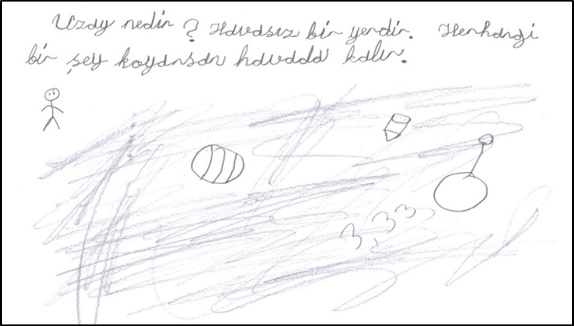 Uzay nedir ? Havasız bir yerdir. Herhangi
bir şey koyarsan havada kalır.